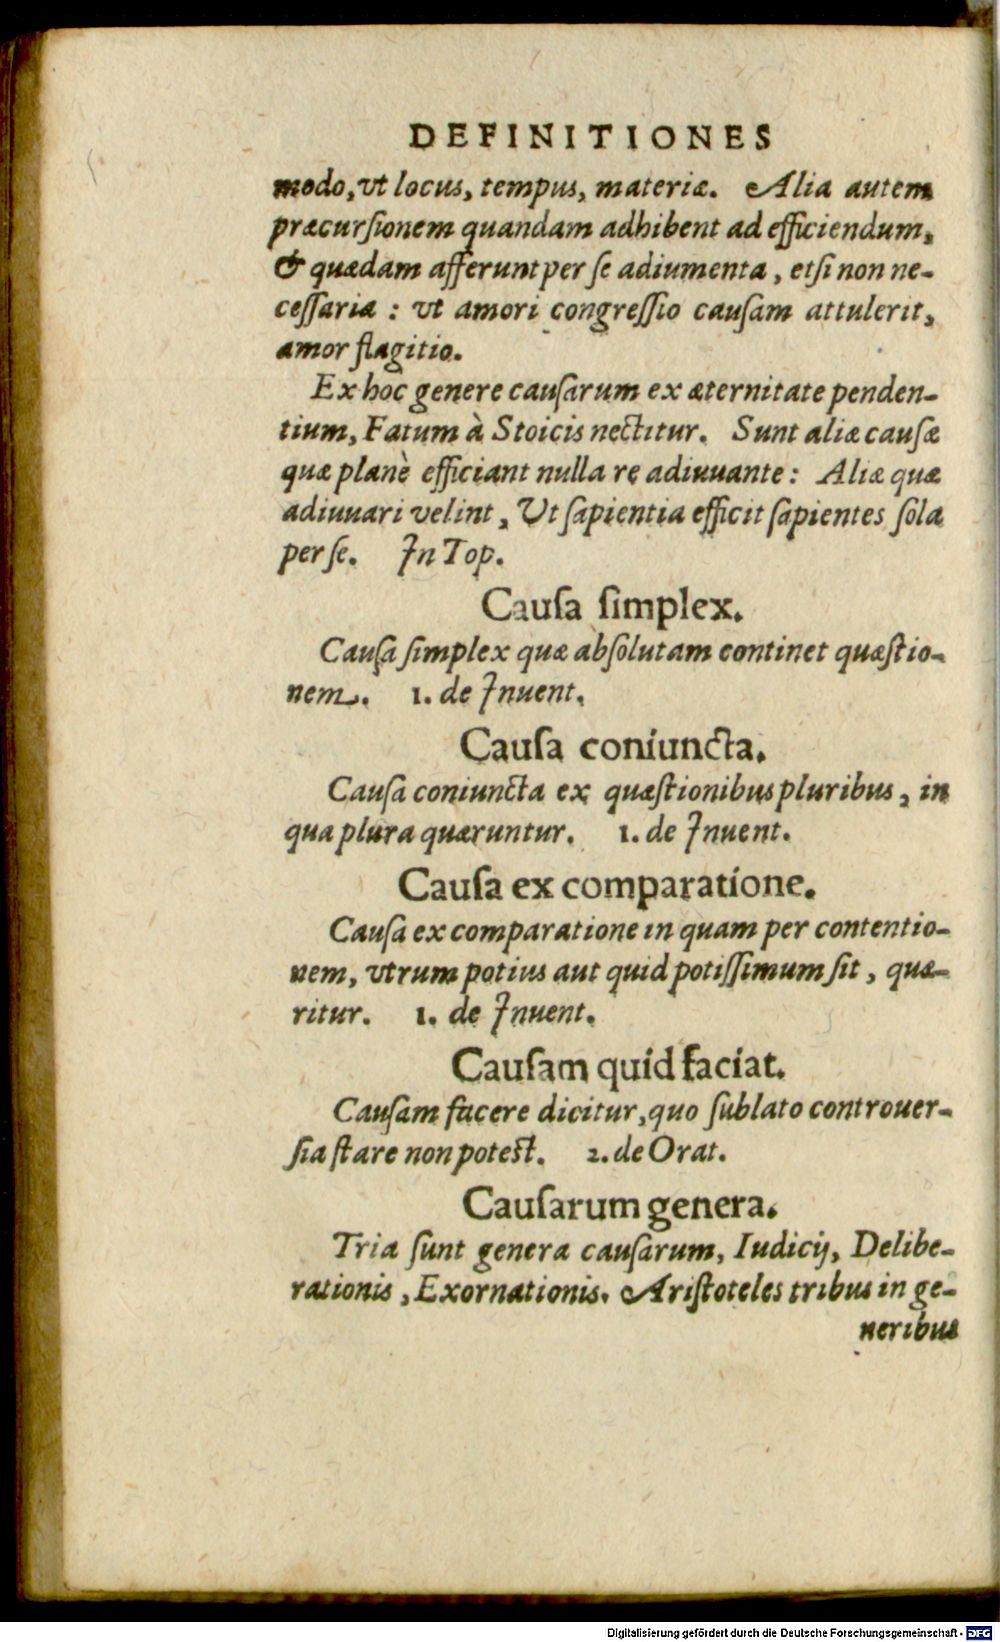 DEFINITIONES
modo, vt locus, tempus, materiæ. Alia autem
præcurſionem quandam adhibent ad efficiendum,
& quædam afferunt per ſe adiumenta, etſi non ne-
ceſſaria : vt amori congreſſio cauſam attulerit,
amor flagitio.
Ex hoc genere cauſarum ex æternitate penden-
tium, Fatum à Stoicis nectitur. Sunt aliæ cauſæ
quæ planè efficiant nulla re adiuuante: Aliæ quæ
adiuuari velint, Vt ſapientia efficit ſapientes ſola
per ſe. In Top.
Cauſa ſimplex.
Cauſa ſimplex quæ abſolutam continet quæſtio-
nem. 1. de Inuent.
Cauſa coniuncta.
Cauſa coniuncta ex quæſtionibus pluribus, in
qua plura quæruntur. 1. de Inuent.
Cauſa ex comparatione.
Cauſa ex comparatione in quam per contentio-
nem, vtrum potius aut quid potiſſimum ſit, quæ-
ritur. 1. de Inuent.
Cauſam quid faciat.
Cauſam facere dicitur, quo ſublato controuer-
ſia ſtare non poteſt. 2. de Orat.
Cauſarum genera.
Tria ſunt genera cauſarum, Iudicij, Delibe-
rationis, Exornationis. Ariſtoteles tribus in ge-
neribus
Digitalisierung gefördert durch die Deutsche Forschungsgemeinschaft - DFG